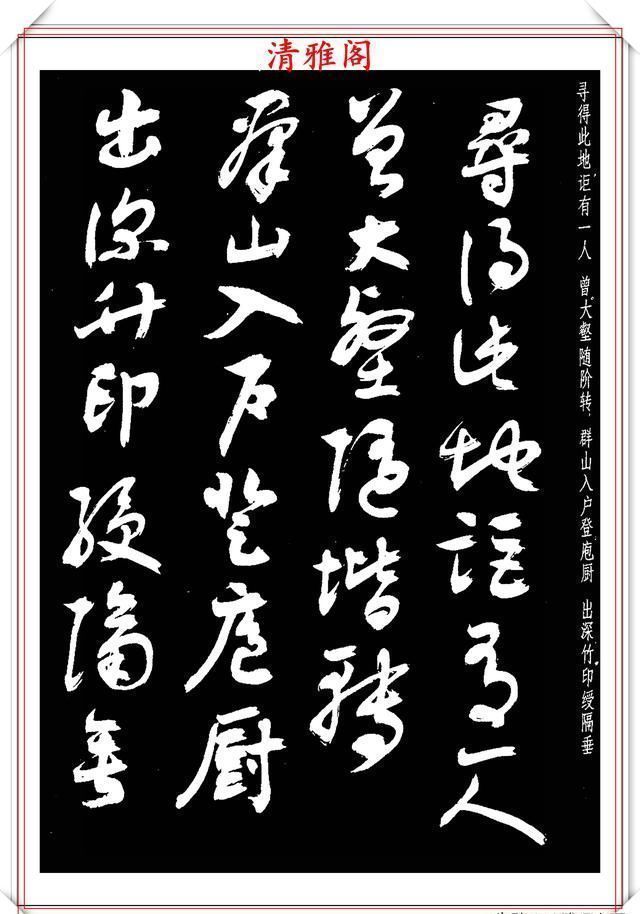 清雅阁
寻得此地讵有一人 曾大壑随阶转 群山入户登庖厨 出深竹印绶隔垂
尋得此地詎有一人
曾大壑隨堦轉
群山入戶登庖厨
出深竹印綬隔垂